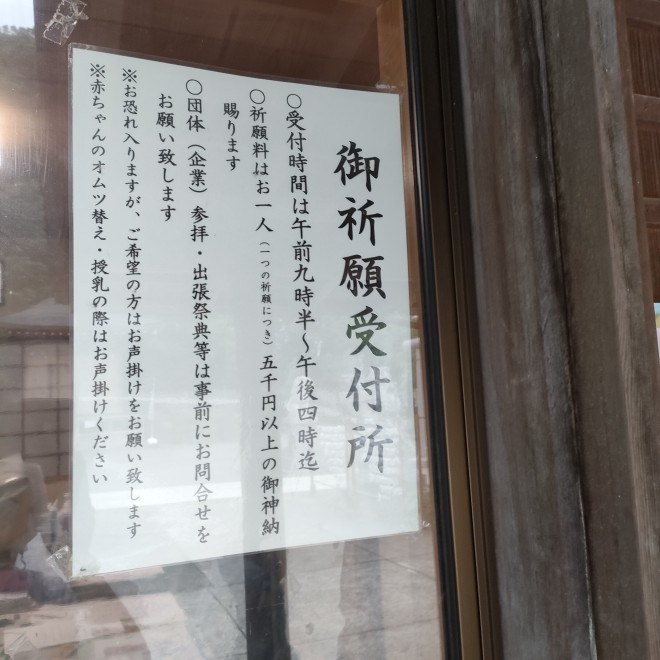 御祈願受付所
○受付時間は午前九時半～午後四時迄
○祈願料はお一人（一つの祈願につき）五千円以上の御神納
賜ります
○団体（企業）参拝・出張祭典等は事前にお問合せを
お願い致します
※お恐れ入りますが、ご希望の方はお声掛けをお願い致します
※赤ちゃんのオムツ替え・授乳の際はお声掛けください